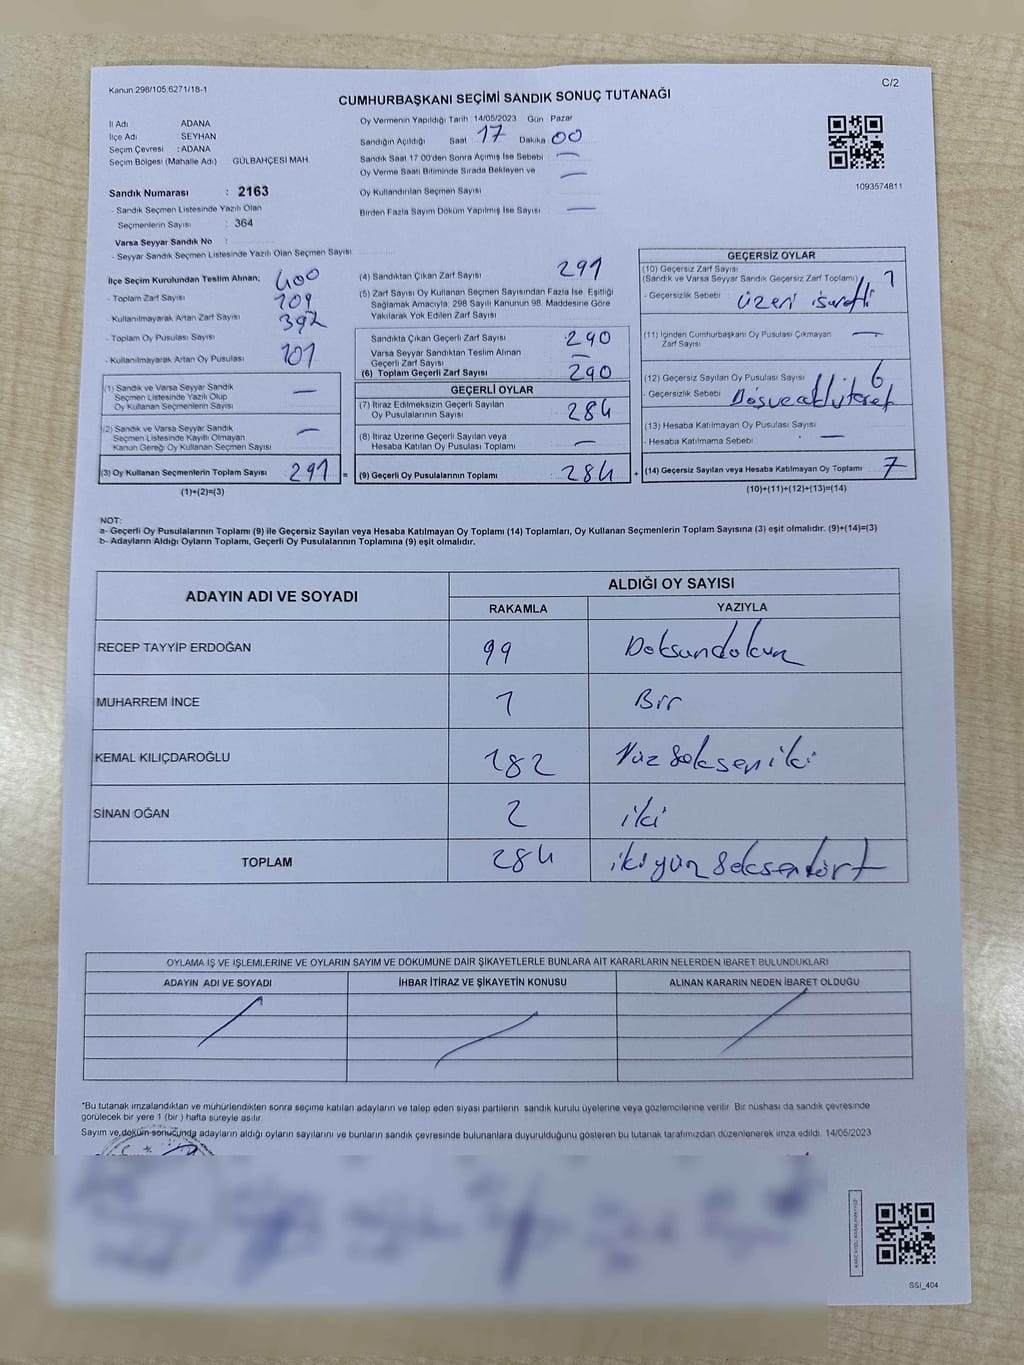 Kanun:298/105;6271/18-1
C/2
CUMHURBAŞKANI SEÇİMİ SANDIK SONUÇ TUTANAĞI
İl Adı ADANA
İlçe Adı : SEYHAN
Seçim Çevresi : ADANA
Seçim Bölgesi (Mahalle Adı) GÜLBAHÇESİ MAH
Sandık Numarası : 2163
- Sandık Seçmen Listesinde Yazılı Olan
Seçmenlerin Sayısı : 364
Varsa Seyyar Sandık No :
- Seyyar Sandık Seçmen Listesinde Yazılı Olan Seçmen Sayısı
Oy Vermenin Yapıldığı Tarih 14/05/2023 Gün Pazar
Sandığın Açıldığı Saat 17 Dakika 00
Sandık Saat 17 00'den Sonra Açımış İse Sebebi —
Oy Verme Saati Bitiminde Sırada Bekleyen ve —
Oy Kullandırılan Seçmen Sayısı
Birden Fazla Sayım Döküm Yapılmış İse Sayısı —
1093574811
İlçe Seçim Kurulundan Teslim Alınan; 400
- Toplam Zarf Sayısı 109
Kullanılmayarak Artan Zarf Sayısı 392
- Toplam Oy Pusulası Sayısı
- Kullanılmayarak Artan Oy Pusulası 101
(1) Sandık ve Varsa Seyyar Sandık
Seçmen Listesinde Yazılı Olup
Oy Kullanan Seçmenlerin Sayısı —
(2) Sandık ve Varsa Seyyar Sandık
Seçmen Listesinde Kayıtlı Olmayan
Kanun Gereği Oy Kullanan Seçmen Sayısı —
(3) Oy Kullanan Seçmenlerin Toplam Sayısı 291 =
(1)+(2)=(3)
(4) Sandıktan Çıkan Zarf Sayısı 291
(5) Zarf Sayısı Oy Kullanan Seçmen Sayısından Fazla İse, Eşitliği
Sağlamak Amacıyla, 298 Sayılı Kanunun 98. Maddesine Göre
Yakılarak Yok Edilen Zarf Sayısı
Sandıkta Çıkan Geçerli Zarf Sayısı 290
Varsa Seyyar Sandıktan Teslim Alınan
Geçerli Zarf Sayısı —
(6) Toplam Geçerli Zarf Sayısı 290
GEÇERLİ OYLAR
(7) İtiraz Edilmeksizin Geçerli Sayılan
Oy Pusulalarının Sayısı 284
(8) İtiraz Üzerine Geçerli Sayılan veya
Hesaba Katılan Oy Pusulası Toplamı —
(9) Geçerli Oy Pusulalarının Toplamı 284 +
GEÇERSİZ OYLAR
(10) Geçersiz Zarf Sayısı
(Sandık ve Varsa Seyyar Sandık Geçersiz Zarf Toplamı) 1
- Geçersizlik Sebebi üzeri işaretli
(11) İçinden Cumhurbaşkanı Oy Pusulası Çıkmayan
Zarf Sayısı —
(12) Geçersiz Sayılan Oy Pusulası Sayısı 6
- Geçersizlik Sebebi
(13) Hesaba Katılmayan Oy Pusulası Sayısı
- Hesaba Katılmama Sebebi —
(14) Geçersiz Sayılan veya Hesaba Katılmayan Oy Toplamı 7
(10)+(11)+(12)+(13)=(14)
NOT:
a- Geçerli Oy Pusulalarının Toplamı (9) ile Geçersiz Sayılan veya Hesaba Katılmayan Oy Toplamı (14) Toplamları, Oy Kullanan Seçmenlerin Toplam Sayısına (3) eşit olmalıdır. (9)+(14)=(3)
b- Adayların Aldığı Oyların Toplamı, Geçerli Oy Pusulalarının Toplamına (9) eşit olmalıdır.
ADAYIN ADI VE SOYADI
ALDIĞI OY SAYISI
RAKAMLA YAZIYLA
RECEP TAYYİP ERDOĞAN 99 Doksandokuz
MUHARREM İNCE 1 Bir
KEMAL KILIÇDAROĞLU 182 Yüzseksen iki
SİNAN OĞAN 2 iki
TOPLAM 284 ikiyüz seksendört
OYLAMA İŞ VE İŞLEMLERİNE VE OYLARIN SAYIM VE DÖKÜMÜNE DAİR ŞİKAYETLERLE BUNLARA AİT KARARLARIN NELERDEN İBARET BULUNDUKLARI
ADAYIN ADI VE SOYADI İHBAR İTİRAZ VE ŞİKAYETİN KONUSU ALINAN KARARIN NEDEN İBARET OLDUĞU
*Bu tutanak imzalandıktan ve mühürlendikten sonra seçime katılan adayların ve talep eden siyasi partilerin sandık kurulu üyelerine veya gözlemcilerine verilir. Bir nushası da sandık çevresinde
görülecek bir yere 1 (bir ) hafta süreyle asılır.
Sayım ve döküm sonucunda adayların aldığı oyların sayılarını ve bunların sandık çevresinde bulunanlara duyurulduğunu gösteren bu tutanak tarafımızdan düzenlenerek imza edildi. 14/05/2023
SSI_404